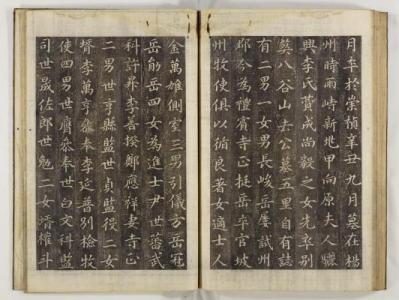 月卒於崇禎辛丑九月墓在楊
州時雨時新兆甲向原夫人驪
興李氏贊成尚毅之女先卒別
葬八谷山去公墓五里自有誌
有二男一女男長峻岳屢試州
郡今為禮賓寺正挺岳卒官坡
州牧使俱以循良著女適士人
金萬雄側室三男引儀方岳冠
岳勛岳四女為進士尹世蕃武
科許昇李善揆鄭應祥妻寺正
二男世亨縣監世貞監役二女
壻李萬亨參奉李延普別檢牧
使四男世膺參奉世白文科監
司世晟佐郎世勉二女壻權斗